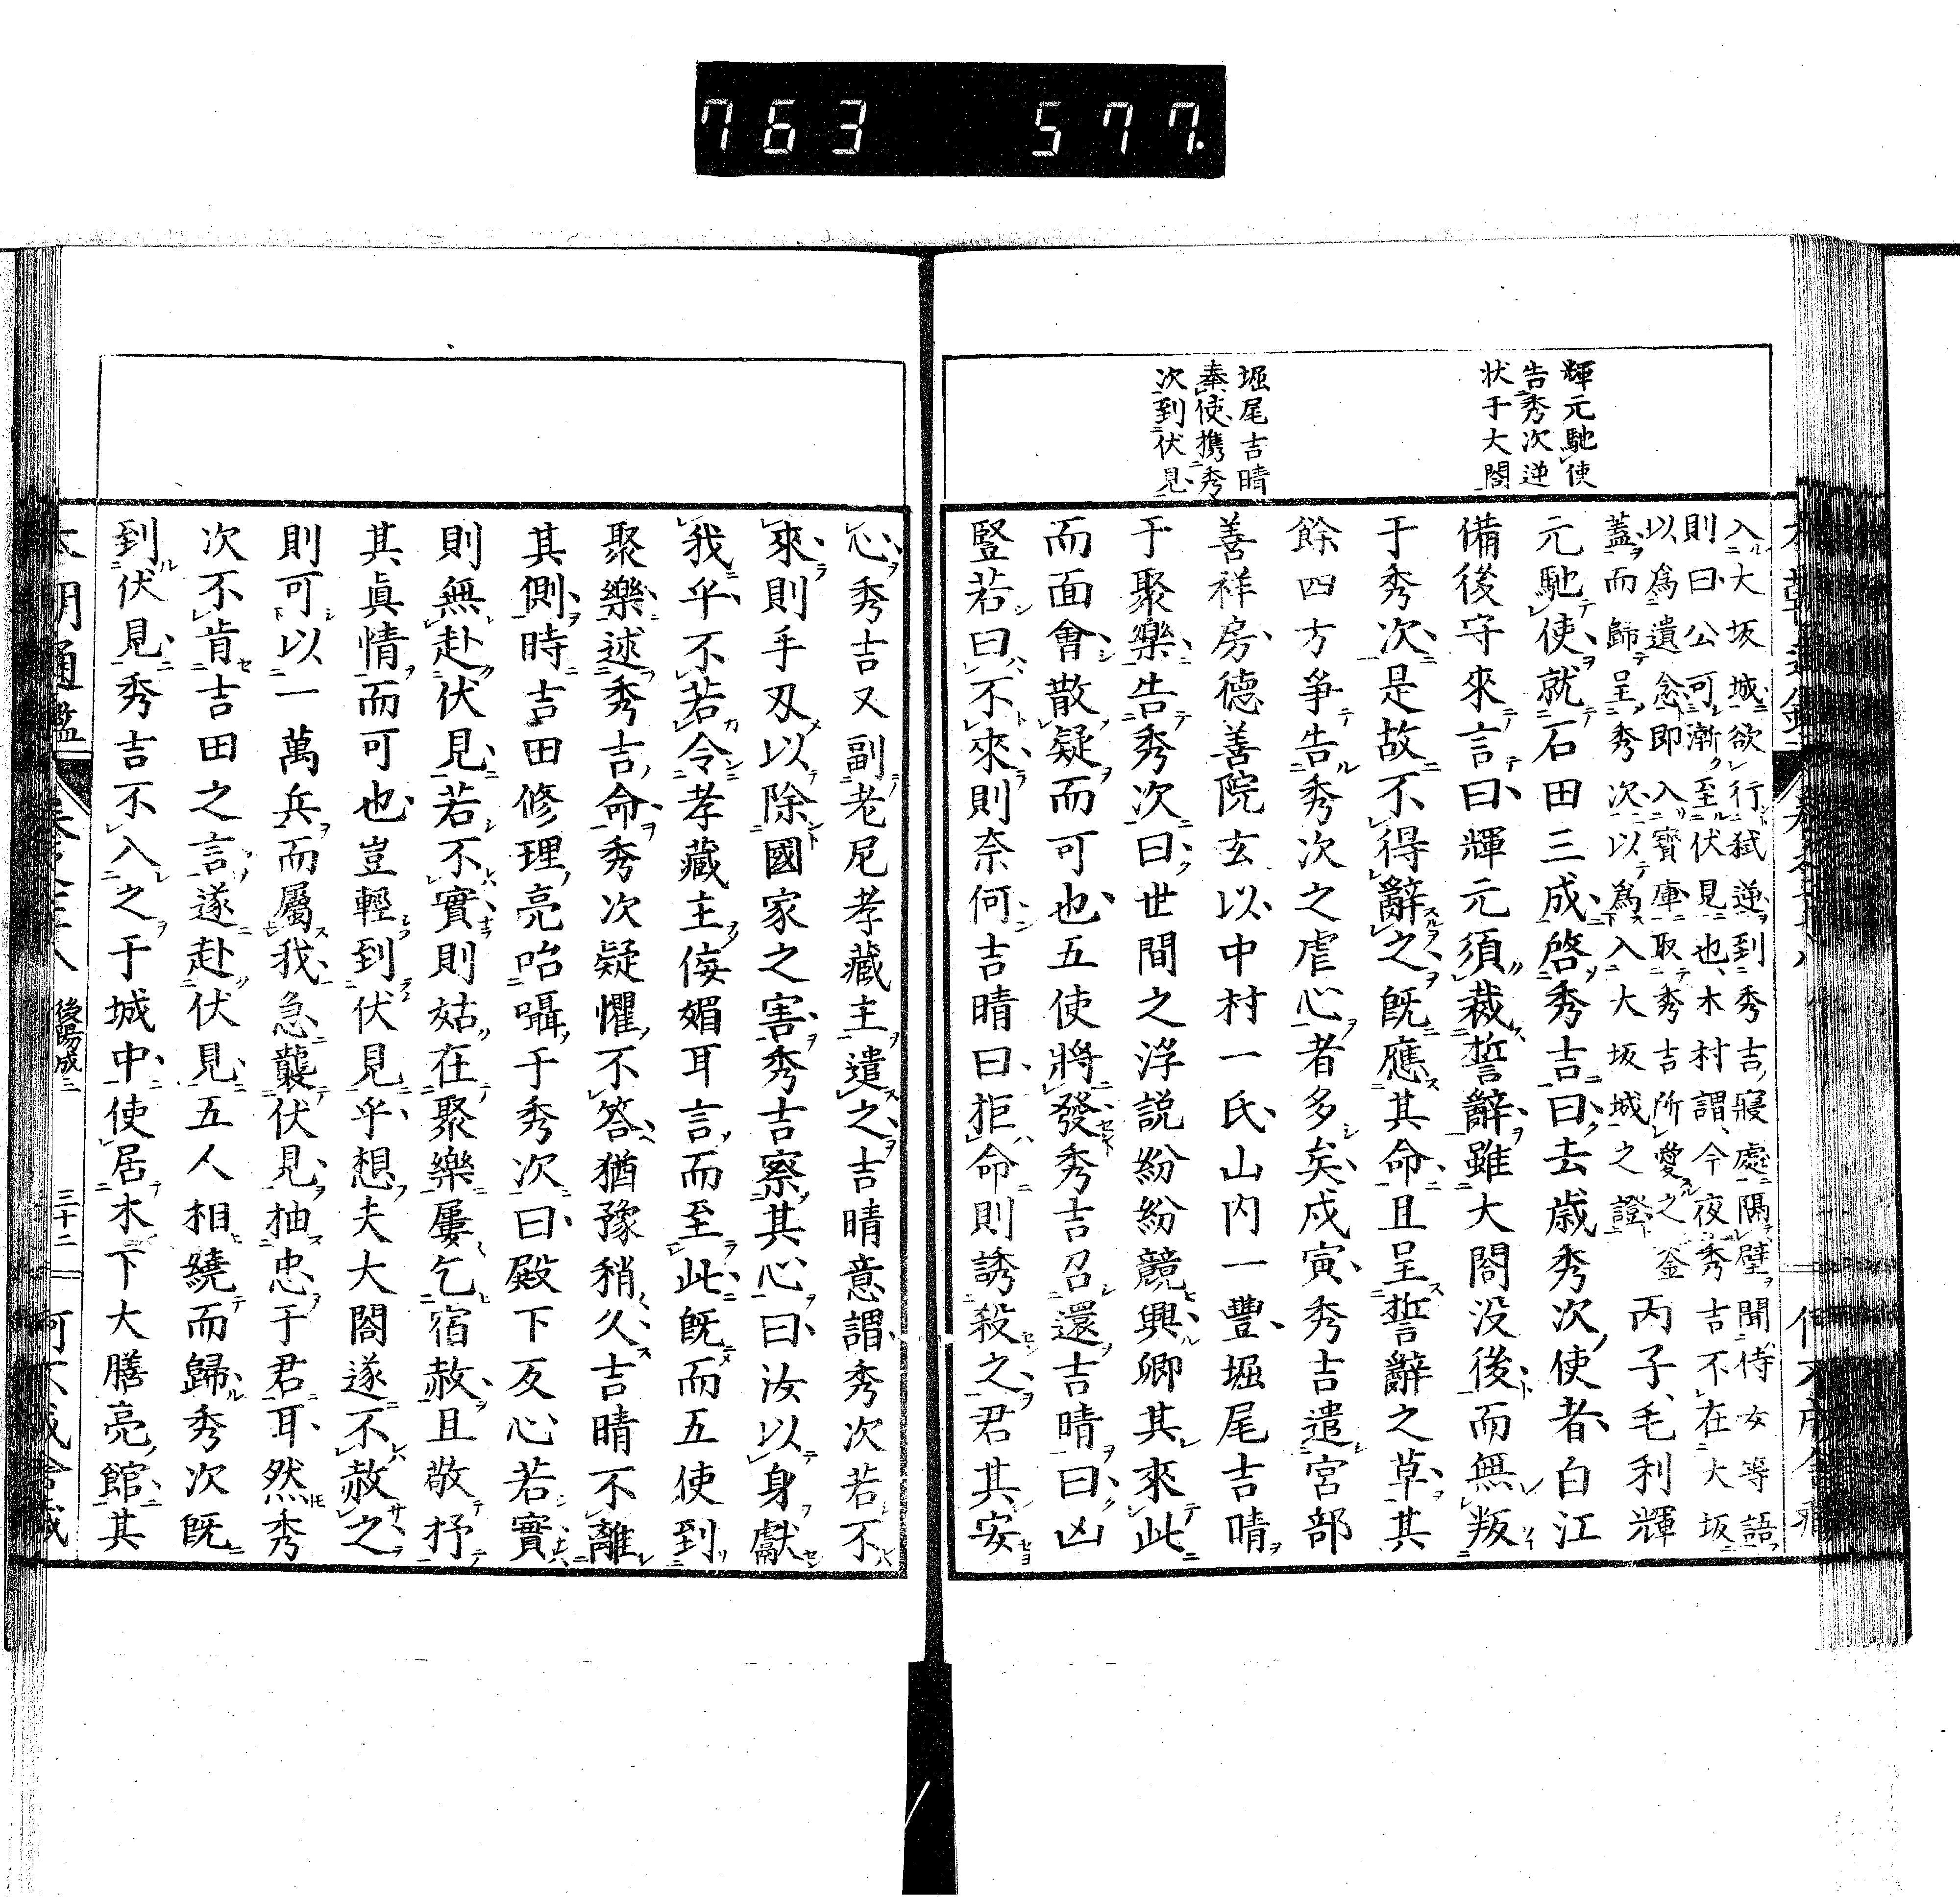 763 577.
輝元馳使
告秀次逆
状于大閤
堀尾吉晴
奉使携秀
次到伏見
入大坂城欲行弑逆到秀吉寢處隔壁聞侍女等語
則曰公可漸至伏見也木村謂今夜秀吉不在大坂
以爲遺念即入寳庫取秀吉所愛之釜
蓋而歸呈秀次以爲入大坂城之證
丙子毛利輝
元馳使就石田三成啓秀吉曰去歳秀次使者白江
備後守來言曰輝元須裁誓辭雖大閤没後而無叛
于秀次是故不得辭之既應其命且呈誓辭之草其
餘四方爭告秀次之虐心者多矣戍寅秀吉遣宮部
善祥房德善院玄以中村一氏山内一豐堀尾吉晴
于聚樂告秀次曰世間之浮説紛紛競興卿其來此
而面會散疑而可也五使將發秀吉召還吉晴曰凶
豎若曰不來則奈何吉晴曰拒命則誘殺之君其安
心秀吉又副老尼孝藏主遣之吉晴意謂秀次若不
來則手刃以除國家之害秀吉察其心曰汝以身獻
我乎不若令孝藏主侫媚耳言而至此既而五使到
聚樂述秀吉命秀次疑懼不答猶豫稍久吉晴不離
其側時吉田修理亮呫囁于秀次曰殿下反心若實
則無赴伏見若不實則姑在聚樂屢乞宿赦且敬抒
其眞情而可也豈輕到伏見乎想夫大閤遂不赦之
則可以一萬兵而屬我急襲伏見抽忠于君耳然秀
次不肯吉田之言遂赴伏見五人相繞而歸秀次既
到伏見秀吉不入之于城中使居木下大膳亮館其
後陽成二
三十二